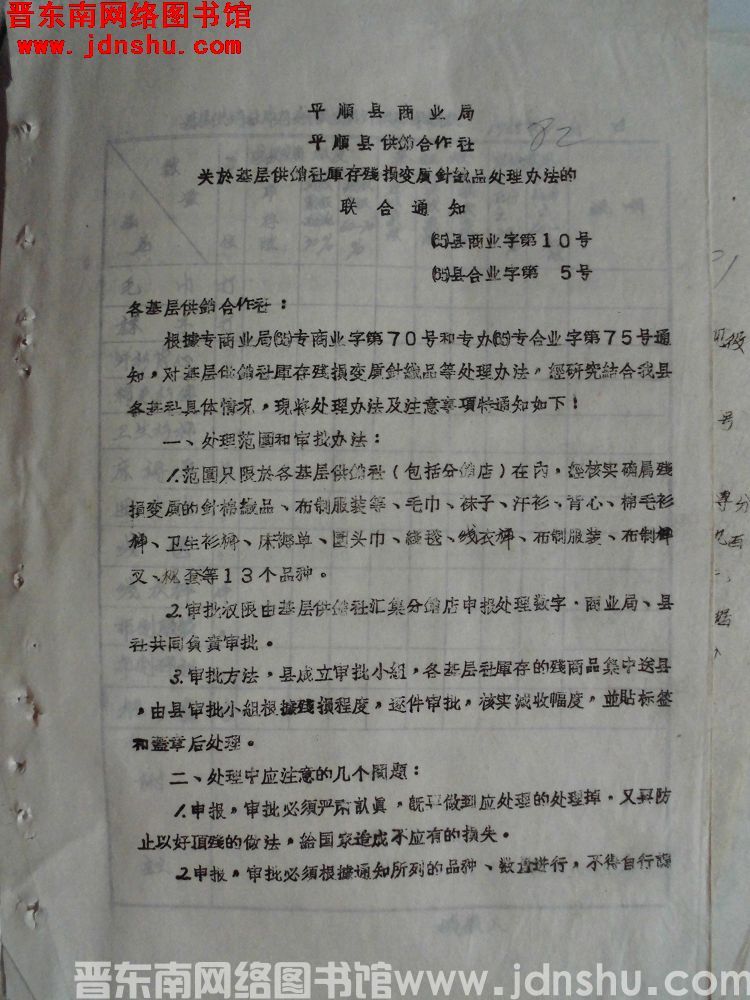 晋东南网络图书馆
www.jdnshu.com
平順县商业局
82
平順县供銷合作社
关於基层供銷社庫存残損变质針織品处理办法的
联合通知
(65)县商业字第10号
(65)县合业字第 5号
各基层供銷合作社：
根據专商业局(65)专商业字第70号和专办(65)专合业字第75号通
知，对基层供銷社庫存残損变质針織品等处理办法，經研究結合我县
各基社具体情况，現将处理办法及注意事項特通知如下！
一、处理范圍和审批办法：
1.范圍只限於各基层供銷社（包括分銷店）在內，經核实确属残
損变质的針棉織品、布制服装等、毛巾、袜子、汗衫、背心、棉毛衫
褲、卫生衫褲、床褥单、圍头巾、綫毯、线衣褲、布制服装、布制褲
叉、枕套等13个品种。
2.审批权限由基层供銷社汇集分銷店申报处理数字．商业局、县
社共同負責审批。
3.审批方法，县成立审批小組，各基层社庫存的残商品集中送县
，由县审批小組根據残損程度，逐件审批，核实減收幅度，並貼标签
和蓋章后处理。
二、处理中应注意的几个問題：
1.申报，审批必須严肃認真，既要做到应处理的处理掉．又要防
止以好頂残的做法，給国家造成不应有的損失。
2.申报，审批必須根據通知所列的品种、数量进行，不得自行
号
晋东南网络图书馆www.jdnshu.com